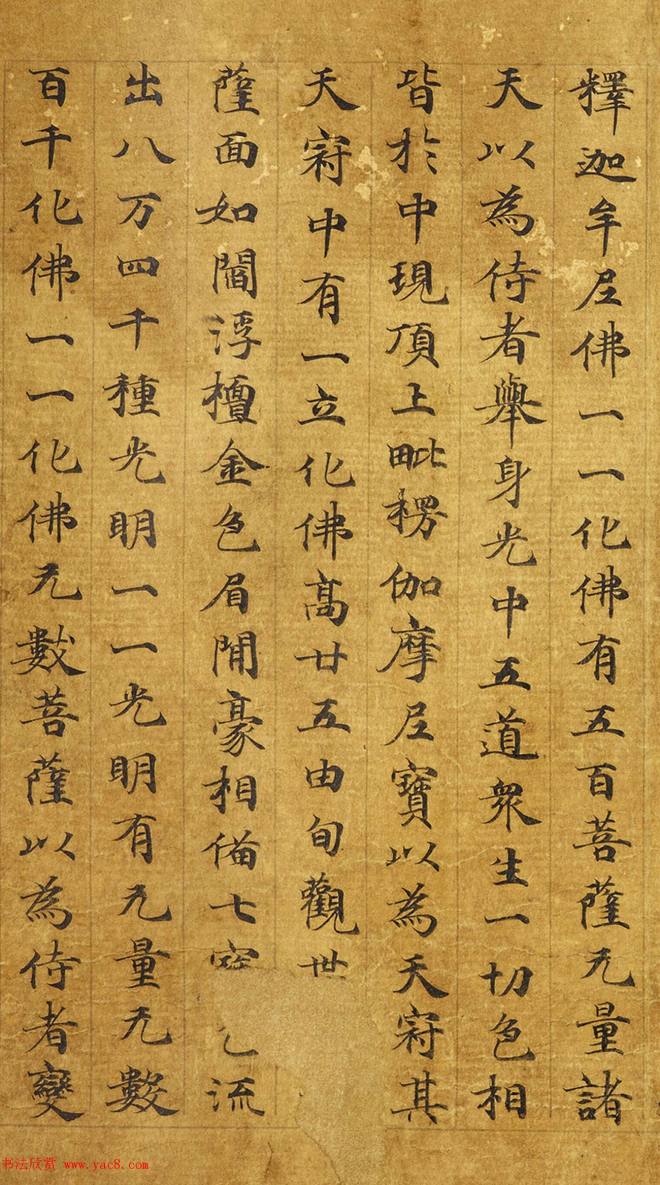 釋迦牟尼佛一一化佛有五百菩薩无量諸
天以為侍者舉身光中五道眾生一切色相
皆於中現頂上毗楞伽摩尼寶以為天冠其
天冠中有一立化佛高廿五由旬觀世
薩面如閻浮檀金色眉間豪相備七寶色流
出八万四千種光明一一光明有无量无數
百千化佛一一化佛无數菩薩以為侍者變
书法欣赏 www.yac8.com